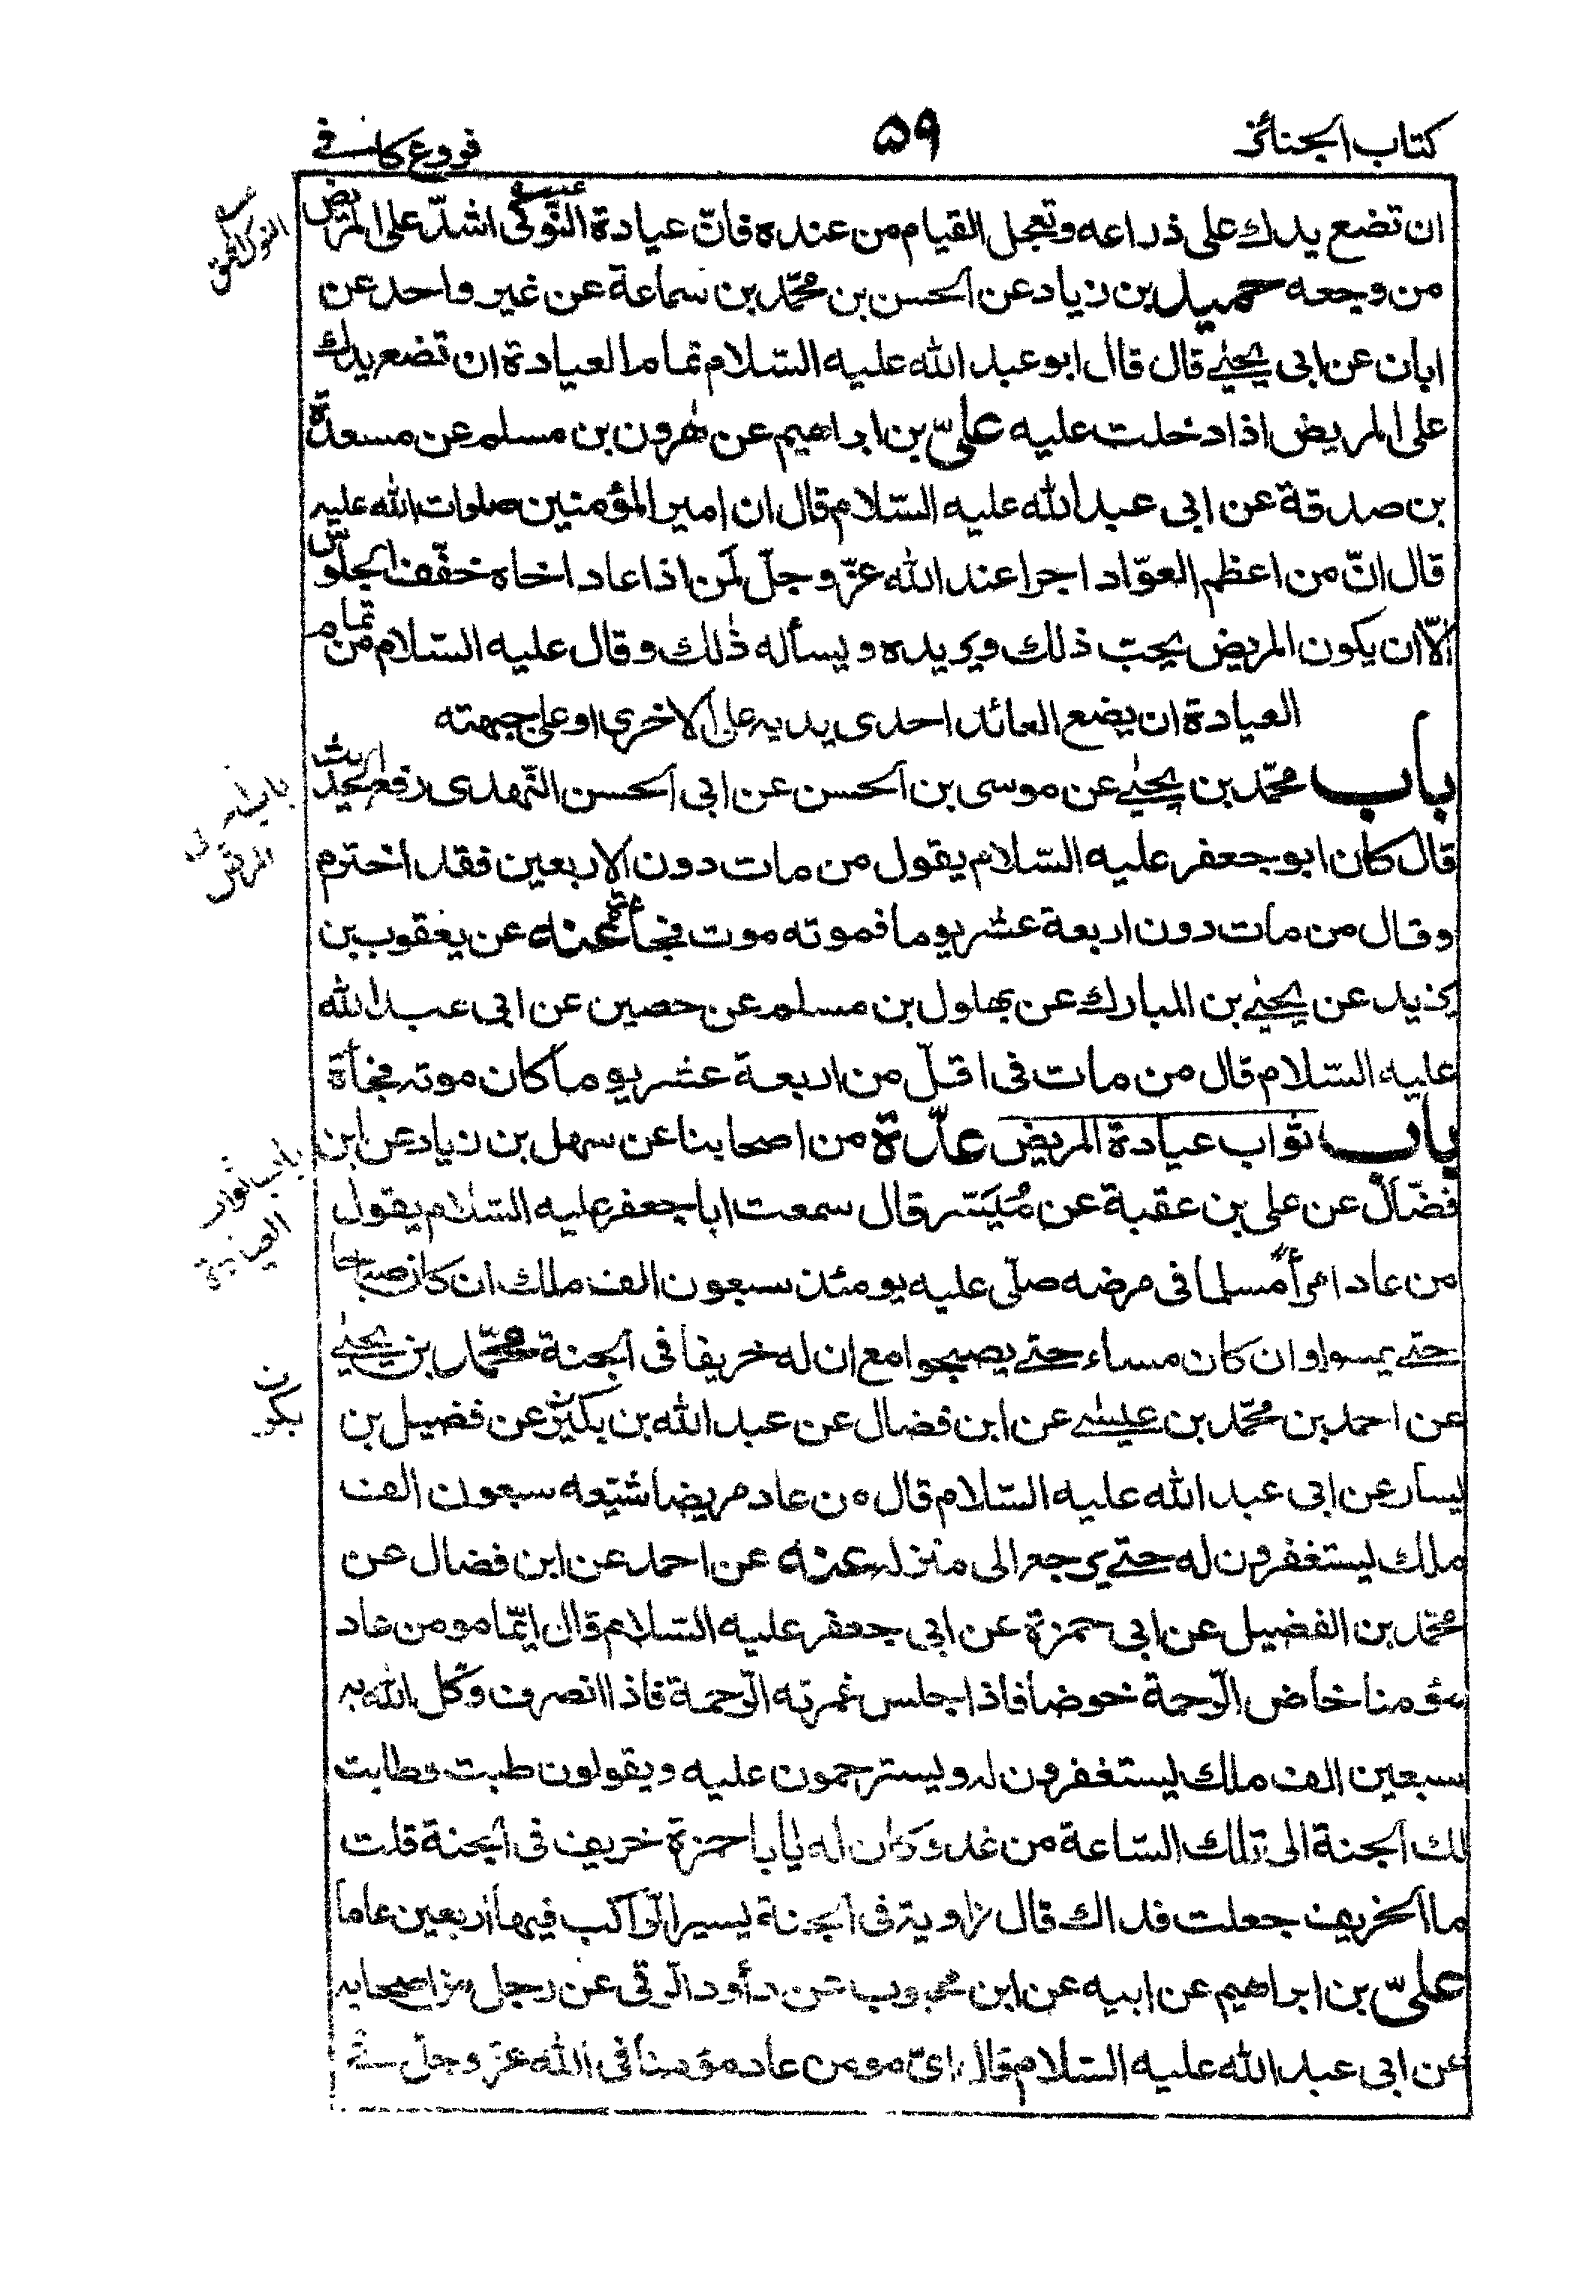 كتاب الجنائز
۵۹
فروع كافے
ان تضع يدك على ذراعه وتعجل القيام من عنده فانّ عيادة النّوكى اشدّ على المريض
من وجعه حميد بن زياد عن الحسن بن محمّد بن سماعة عن غير واحد عن
ابان عن ابى يحيٰے قال قال ابو عبد الله عليه السّلام تمام العيادة ان تضع يدك
على المريض اذا دخلت عليه علىّ بن ابراهيم عن هٰرون بن مسلم عن مسعدة
بن صدقة عن ابى عبد الله عليه السّلام قال ان امير المؤمنين صلوات الله عليه
قال انّ من اعظم العوّاد اجرا عند الله عزّ وجلّ لمَن اذا عاد اخاه خفّف الجلوس
الّا ان يكون المريض يحبّ ذلك ويريده ويسأله ذٰلك وقال عليه السّلام من تمام
العيادة ان يضع العائد احدى يديه على الاخرى او على جبهته
باب محمّد بن يحيٰے عن موسى بن الحسن عن ابى الحسن النّهدى رفع الحديث
قال كان ابو جعفر عليه السّلام يقول من مات دون الاربعين فقد اخترم
وقال من مات دون اربعة عشر يوما فموته موت فجأة عنه عن يعقوب بن
يزيد عن يحيٰے بن المبارك عن بهلول بن مسلم عن حصين عن ابى عبد الله
عليه السّلام قال من مات فى اقلّ من اربعة عشر يوما كان موته فجأة
باب ثواب عيادة المريض عدّة من اصحابنا عن سهل بن زياد عن ابن
فضّال عن على بن عقبة عن مُيَسّر قال سمعت ابا جعفر عليه السّلام يقول
من عاد امرأ مسلما فى مرضه صلّى عليه يومئذ سبعون الف ملك ان كان صباحا
حتّے يمسوا وان كان مساء حتّے يصبحوا مع ان له خريفا فى الجنة محمّد بن يحيٰے
عن احمد بن محمّد بن عيسٰے عن ابن فضال عن عبد الله بن بكير عن فضيل بن
يسار عن ابى عبد الله عليه السّلام قال من عاد مريضا شيّعه سبعون الف
ملك يستغفرون له حتّے يرجع الى منزله عنه عن احمد عن ابن فضال عن
محمّد بن الفضيل عن ابى حمزة عن ابى جعفر عليه السّلام قال ايّما مومن عاد
مؤمنا خاض الرّحمة خوضا فاذا جلس غمرته الرّحمة فاذا انصرف وكّل الله به
سبعين الف ملك يستغفرون له ويسترحمون عليه ويقولون طبت وطابت
لك الجنة الى تلك السّاعة من غد وكان له يا ابا حمزة خريف فى الجنة قلت
ما الخريف جعلت فداك قال زاوية فى الجنة يسير الرّاكب فيها اربعين عاما
علىّ بن ابراهيم عن ابيه عن ابن محبوب عن داود الرّقى عن رجل من اصحابه
عن ابى عبد الله عليه السّلام قال اىّ مومن عاد مؤمنا فى الله عزّ وجلّ فے
باب ثواب